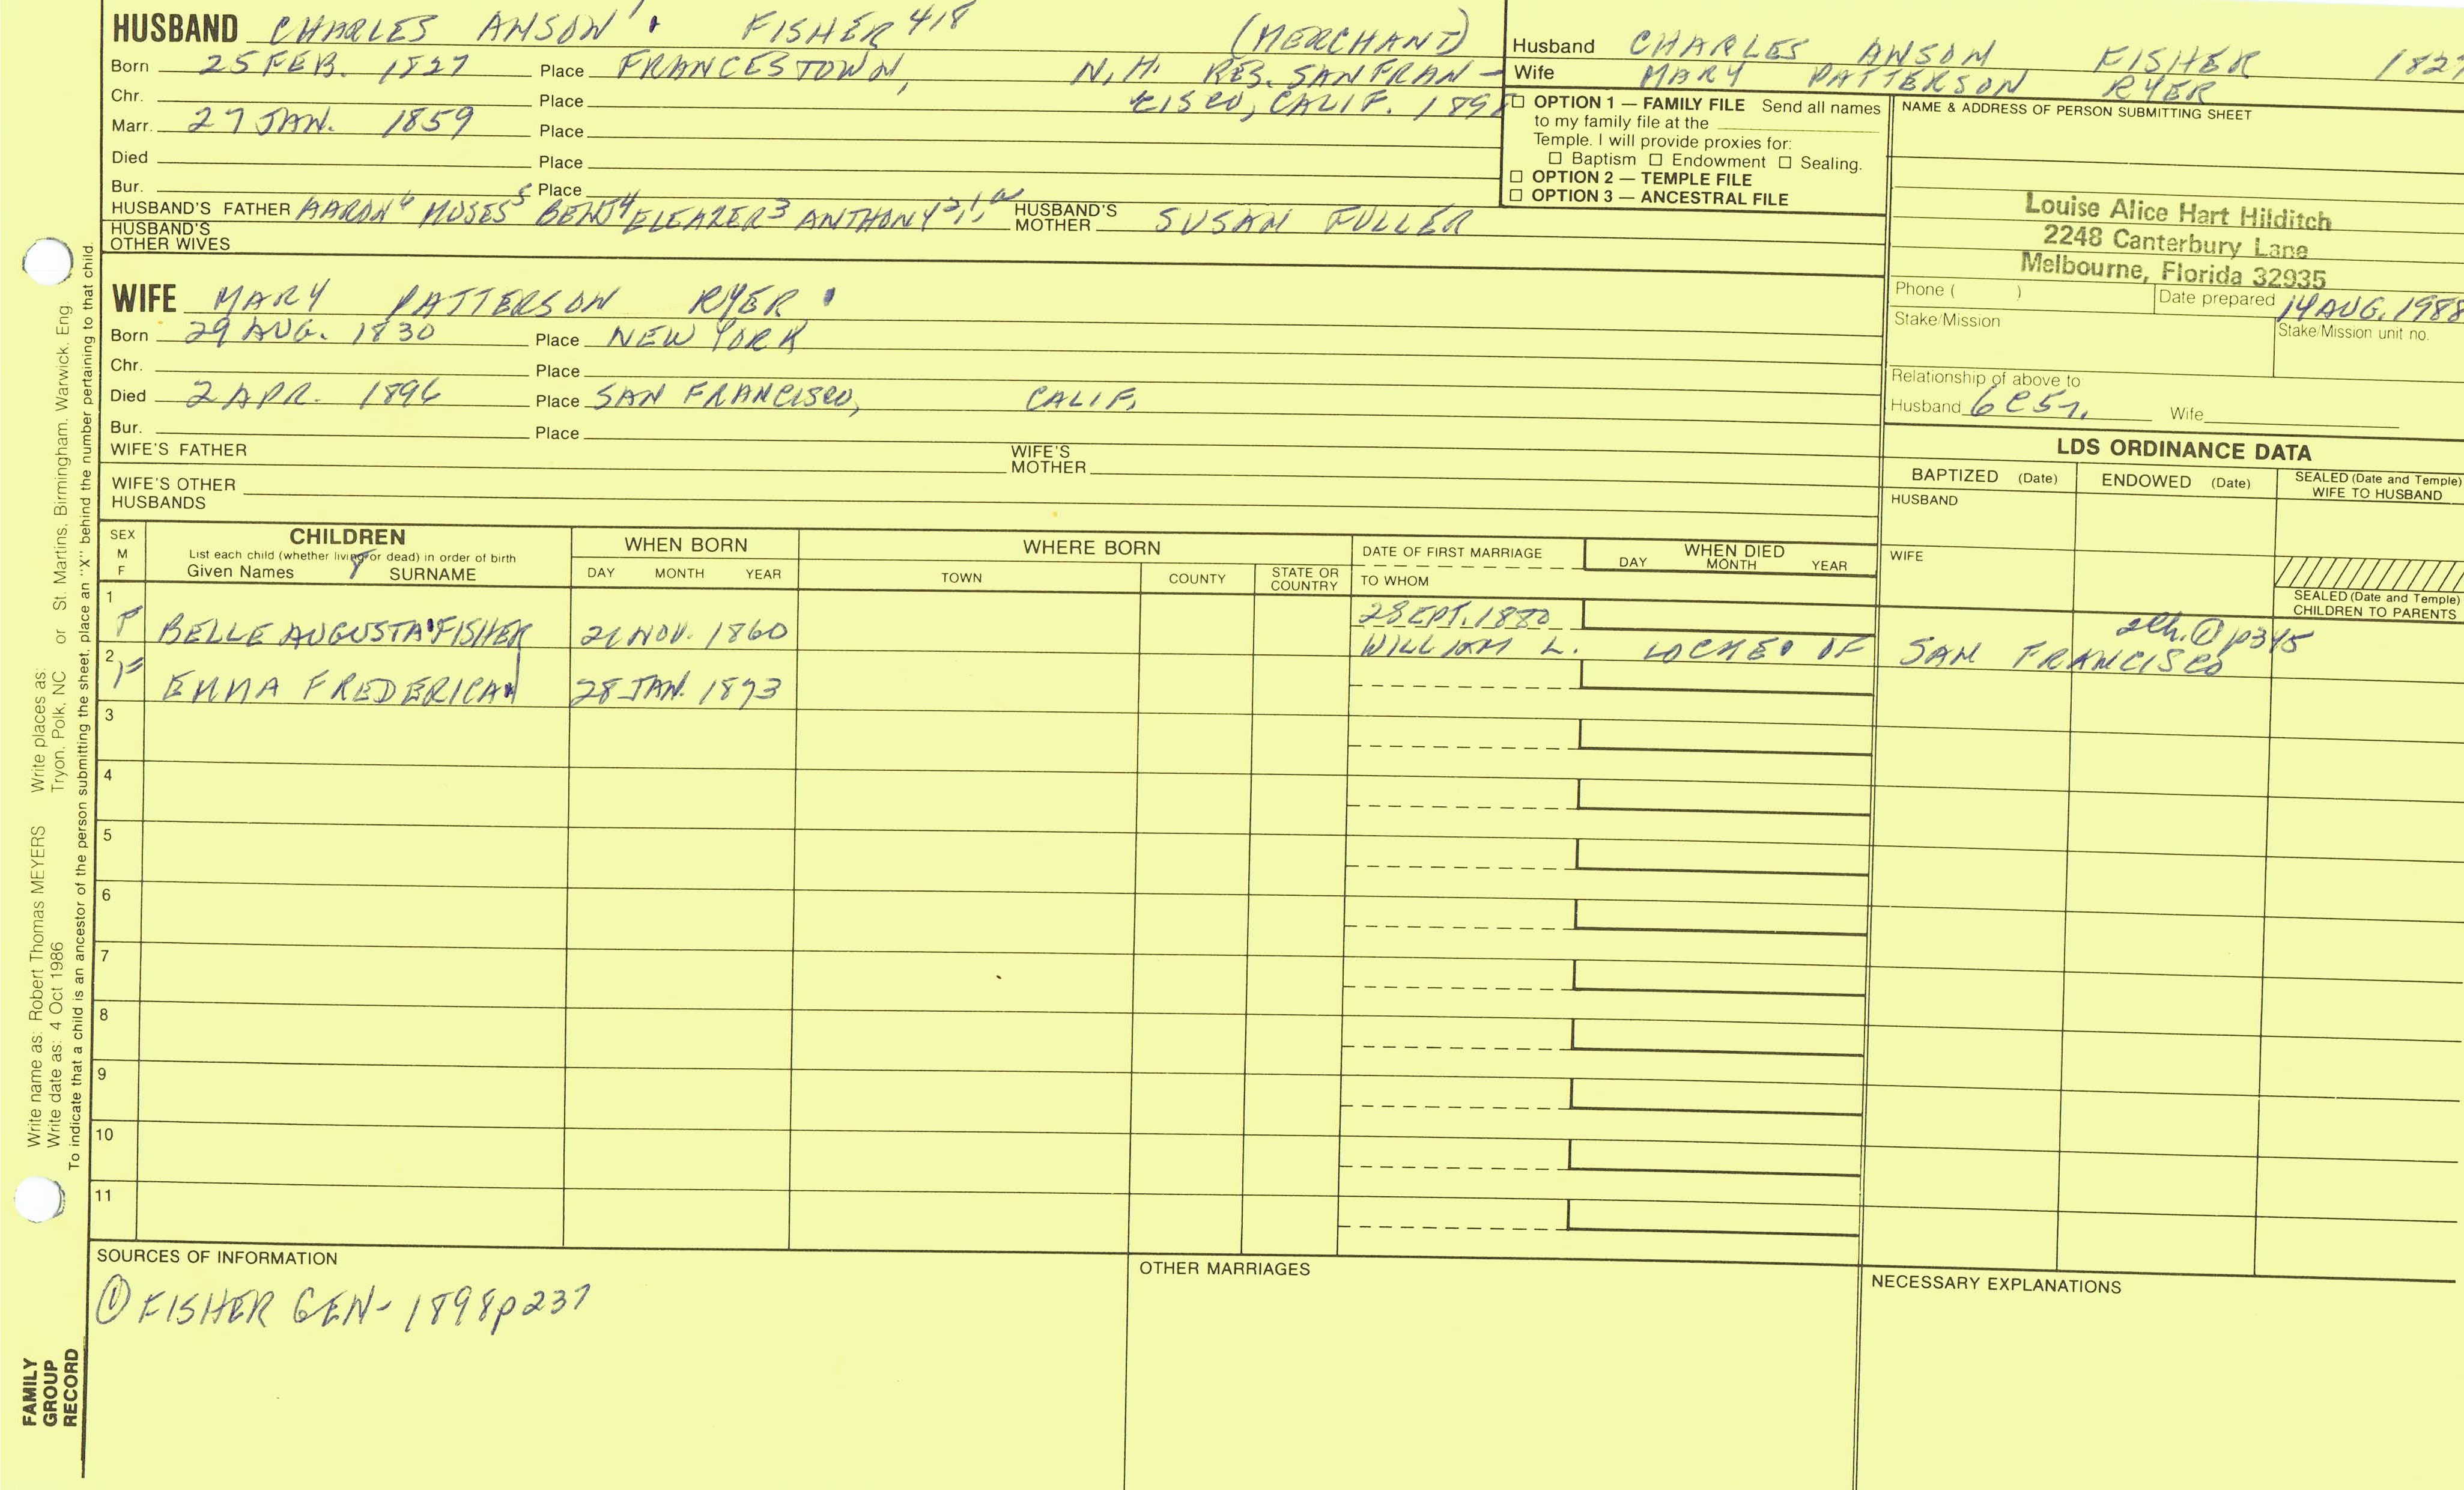 HUSBAND CHARLES ANSON FISHER 418 (MERCHANT)
Born 25 FEB. 1827 Place FRANCESTOWN, N.H. RES. SAN FRAN-
Chr. Place CISCO, CALIF. 1898
Marr. 27 JAN. 1859 Place
Died Place
Bur. Place
HUSBAND'S FATHER AARON6 MOSES5 BENJ4 ELEAZER3 ANTHONY2,1, HUSBAND'S MOTHER SUSAN FULLER
HUSBAND'S OTHER WIVES
Husband CHARLES ANSON FISHER 1827
Wife MARY PATTERSON RYER
☐ OPTION 1 — FAMILY FILE Send all names
to my family file at the
Temple. I will provide proxies for:
☐ Baptism ☐ Endowment ☐ Sealing.
☐ OPTION 2 — TEMPLE FILE
☐ OPTION 3 — ANCESTRAL FILE
NAME & ADDRESS OF PERSON SUBMITTING SHEET
Louise Alice Hart Hilditch
2248 Canterbury Lane
Melbourne, Florida 32935
Phone ( ) Date prepared 14 AUG. 1988
Stake/Mission Stake/Mission unit no.
Relationship of above to
Husband 6C5r. Wife
WIFE MARY PATTERSON RYER
Born 29 AUG. 1830 Place NEW YORK
Chr. Place
Died 2 APR. 1896 Place SAN FRANCISCO, CALIF.
Bur. Place
WIFE'S FATHER WIFE'S MOTHER
WIFE'S OTHER HUSBANDS
LDS ORDINANCE DATA
BAPTIZED (Date) ENDOWED (Date) SEALED (Date and Temple) WIFE TO HUSBAND
HUSBAND
WIFE
SEALED (Date and Temple) CHILDREN TO PARENTS
SEX M F
CHILDREN
List each child (whether living or dead) in order of birth
Given Names SURNAME
WHEN BORN
DAY MONTH YEAR
WHERE BORN
TOWN COUNTY STATE OR COUNTRY
DATE OF FIRST MARRIAGE
TO WHOM
WHEN DIED
DAY MONTH YEAR
1 F BELLE AUGUSTA FISHER 21 NOV. 1860 2 SEPT. 1880
WILLIAM L. LOCKE OF SAN FRANCISCO 2ch. ① p345
2 F EMMA FREDERICA 28 JAN. 1873
3
4
5
6
7
8
9
10
11
SOURCES OF INFORMATION
① FISHER GEN- 1898 p237
OTHER MARRIAGES
NECESSARY EXPLANATIONS
Write name as: Robert Thomas MEYERS Write places as: Tryon, Polk, NC or St. Martins, Birmingham, Warwick, Eng
Write date as: 4 Oct 1986
To indicate that a child is an ancestor of the person submitting the sheet, place an "X" behind the number pertaining to that child.
FAMILY
GROUP
RECORD